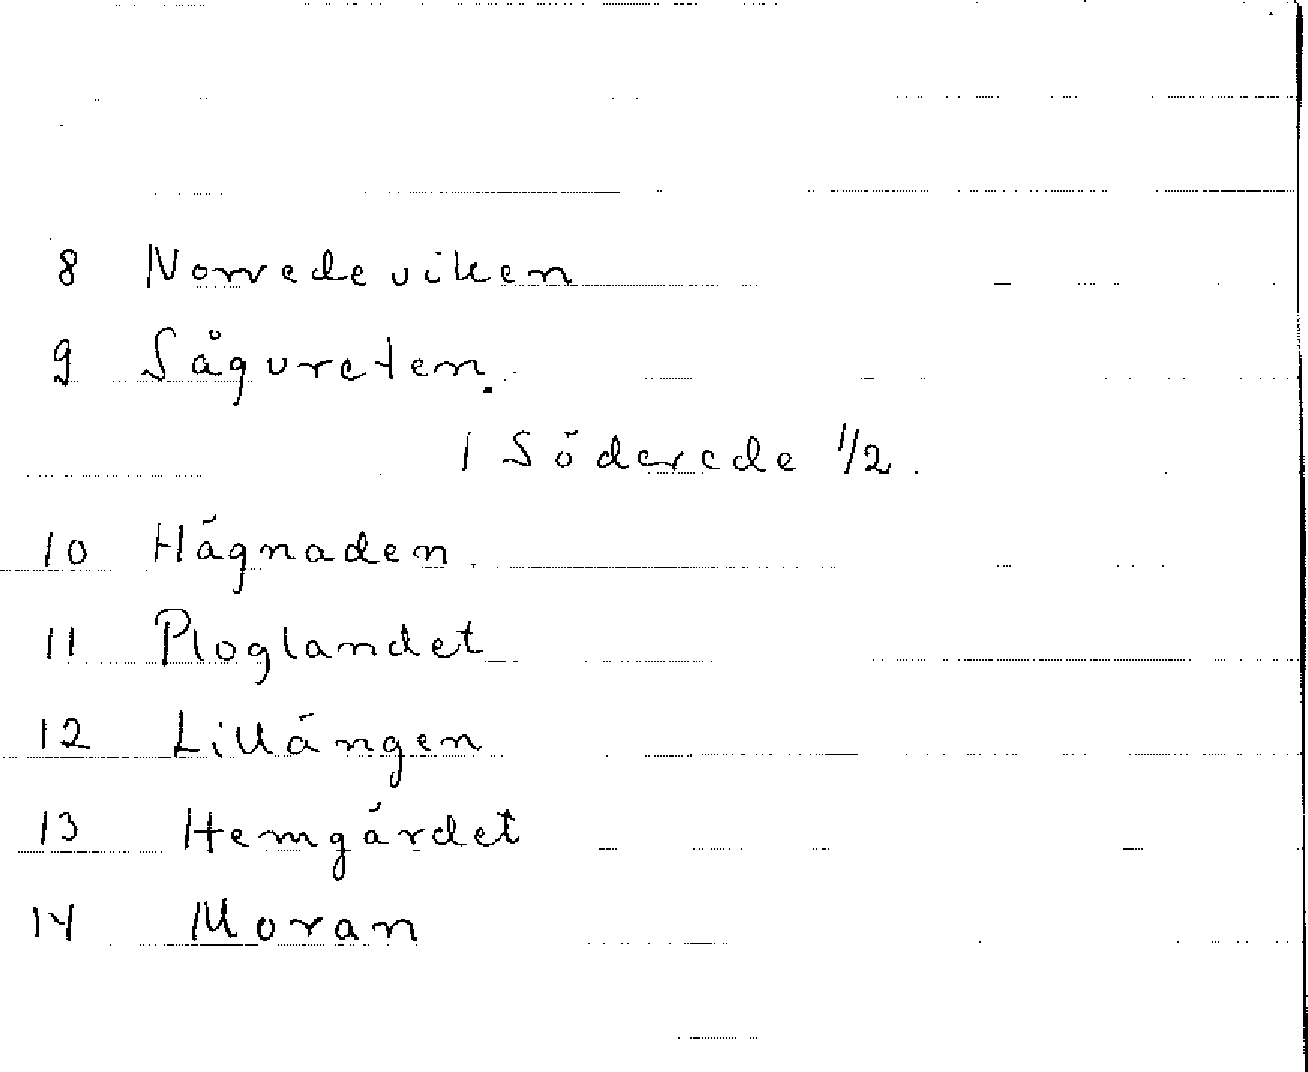 8 Norredeviken
9 Sågvreten.
1 Söderede 1/2.
10 Hägnaden.
11 Ploglandet
12 Lillängen
13 Hemgärdet
14 Moran